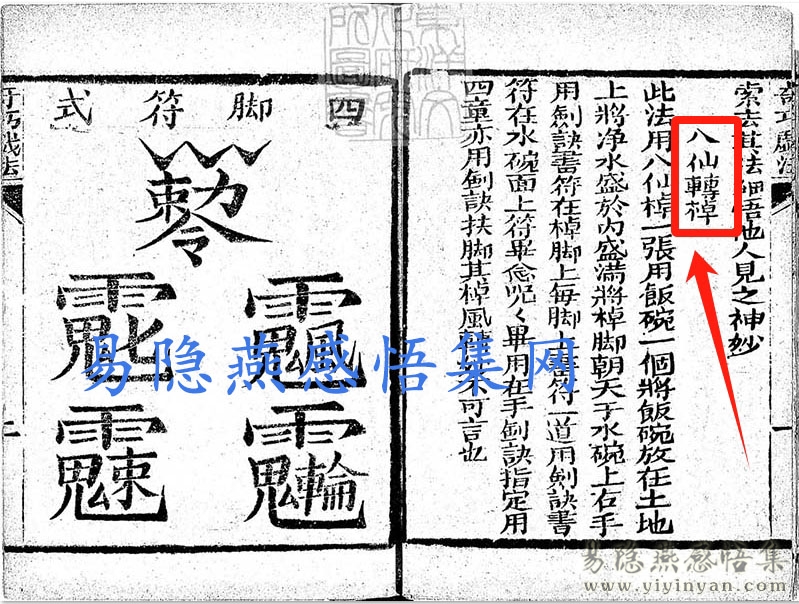 奇巧戲法
索去其法細悟他人見之神妙
八仙轉棹
此法用八仙棹一張用飯碗一個將飯碗放在土地
上將净水盛於内盛滿將棹脚朝天于水碗上右手
用劍訣書符在棹脚上每脚上書符一道用劍訣書
符在水碗面上符畢念呪〻畢用右手劍訣指定用
四童亦用劍訣扶脚其棹風轉不可言也
四脚符式
奇巧戲法
易隐燕感悟集网
易隐燕感悟集
www.yiyinyan.com